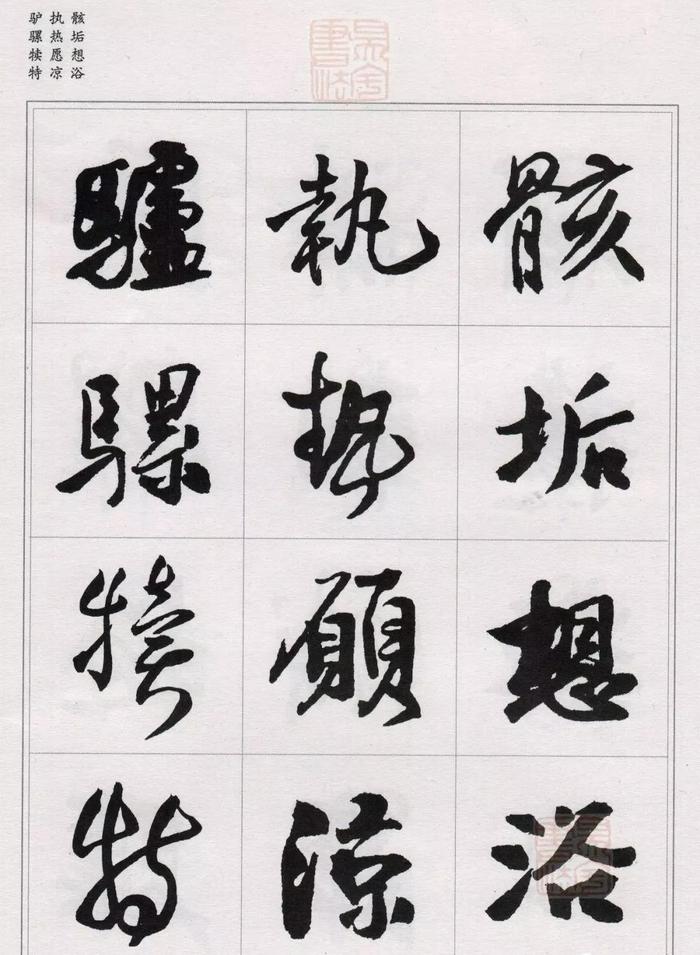 骸垢想浴
执热愿凉
驴骡犊特
骸垢想浴
執熱願涼
驢騾犢特